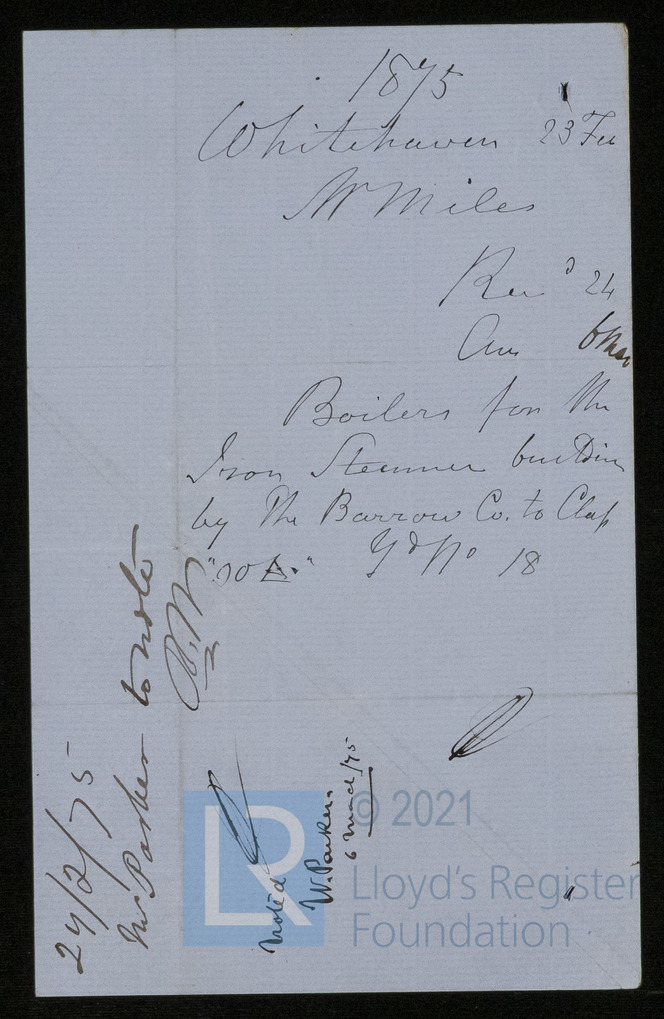 1875
Whitehaven 23 Feb
Mr Miles
Rec d 24
Ans 6 Mar
Boilers for the
Iron Steamer building
by The Barrow Co. to Class
"90 A." Yd No 18
24/2/75
Mr Parker to note
Noted
W. Parker
6 March/75
© 2021
LR
Lloyd's Register
Foundation